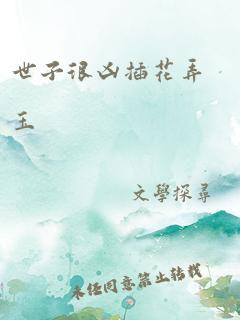 世子很凶插花弄
玉
文學探尋
未经同意禁止转载